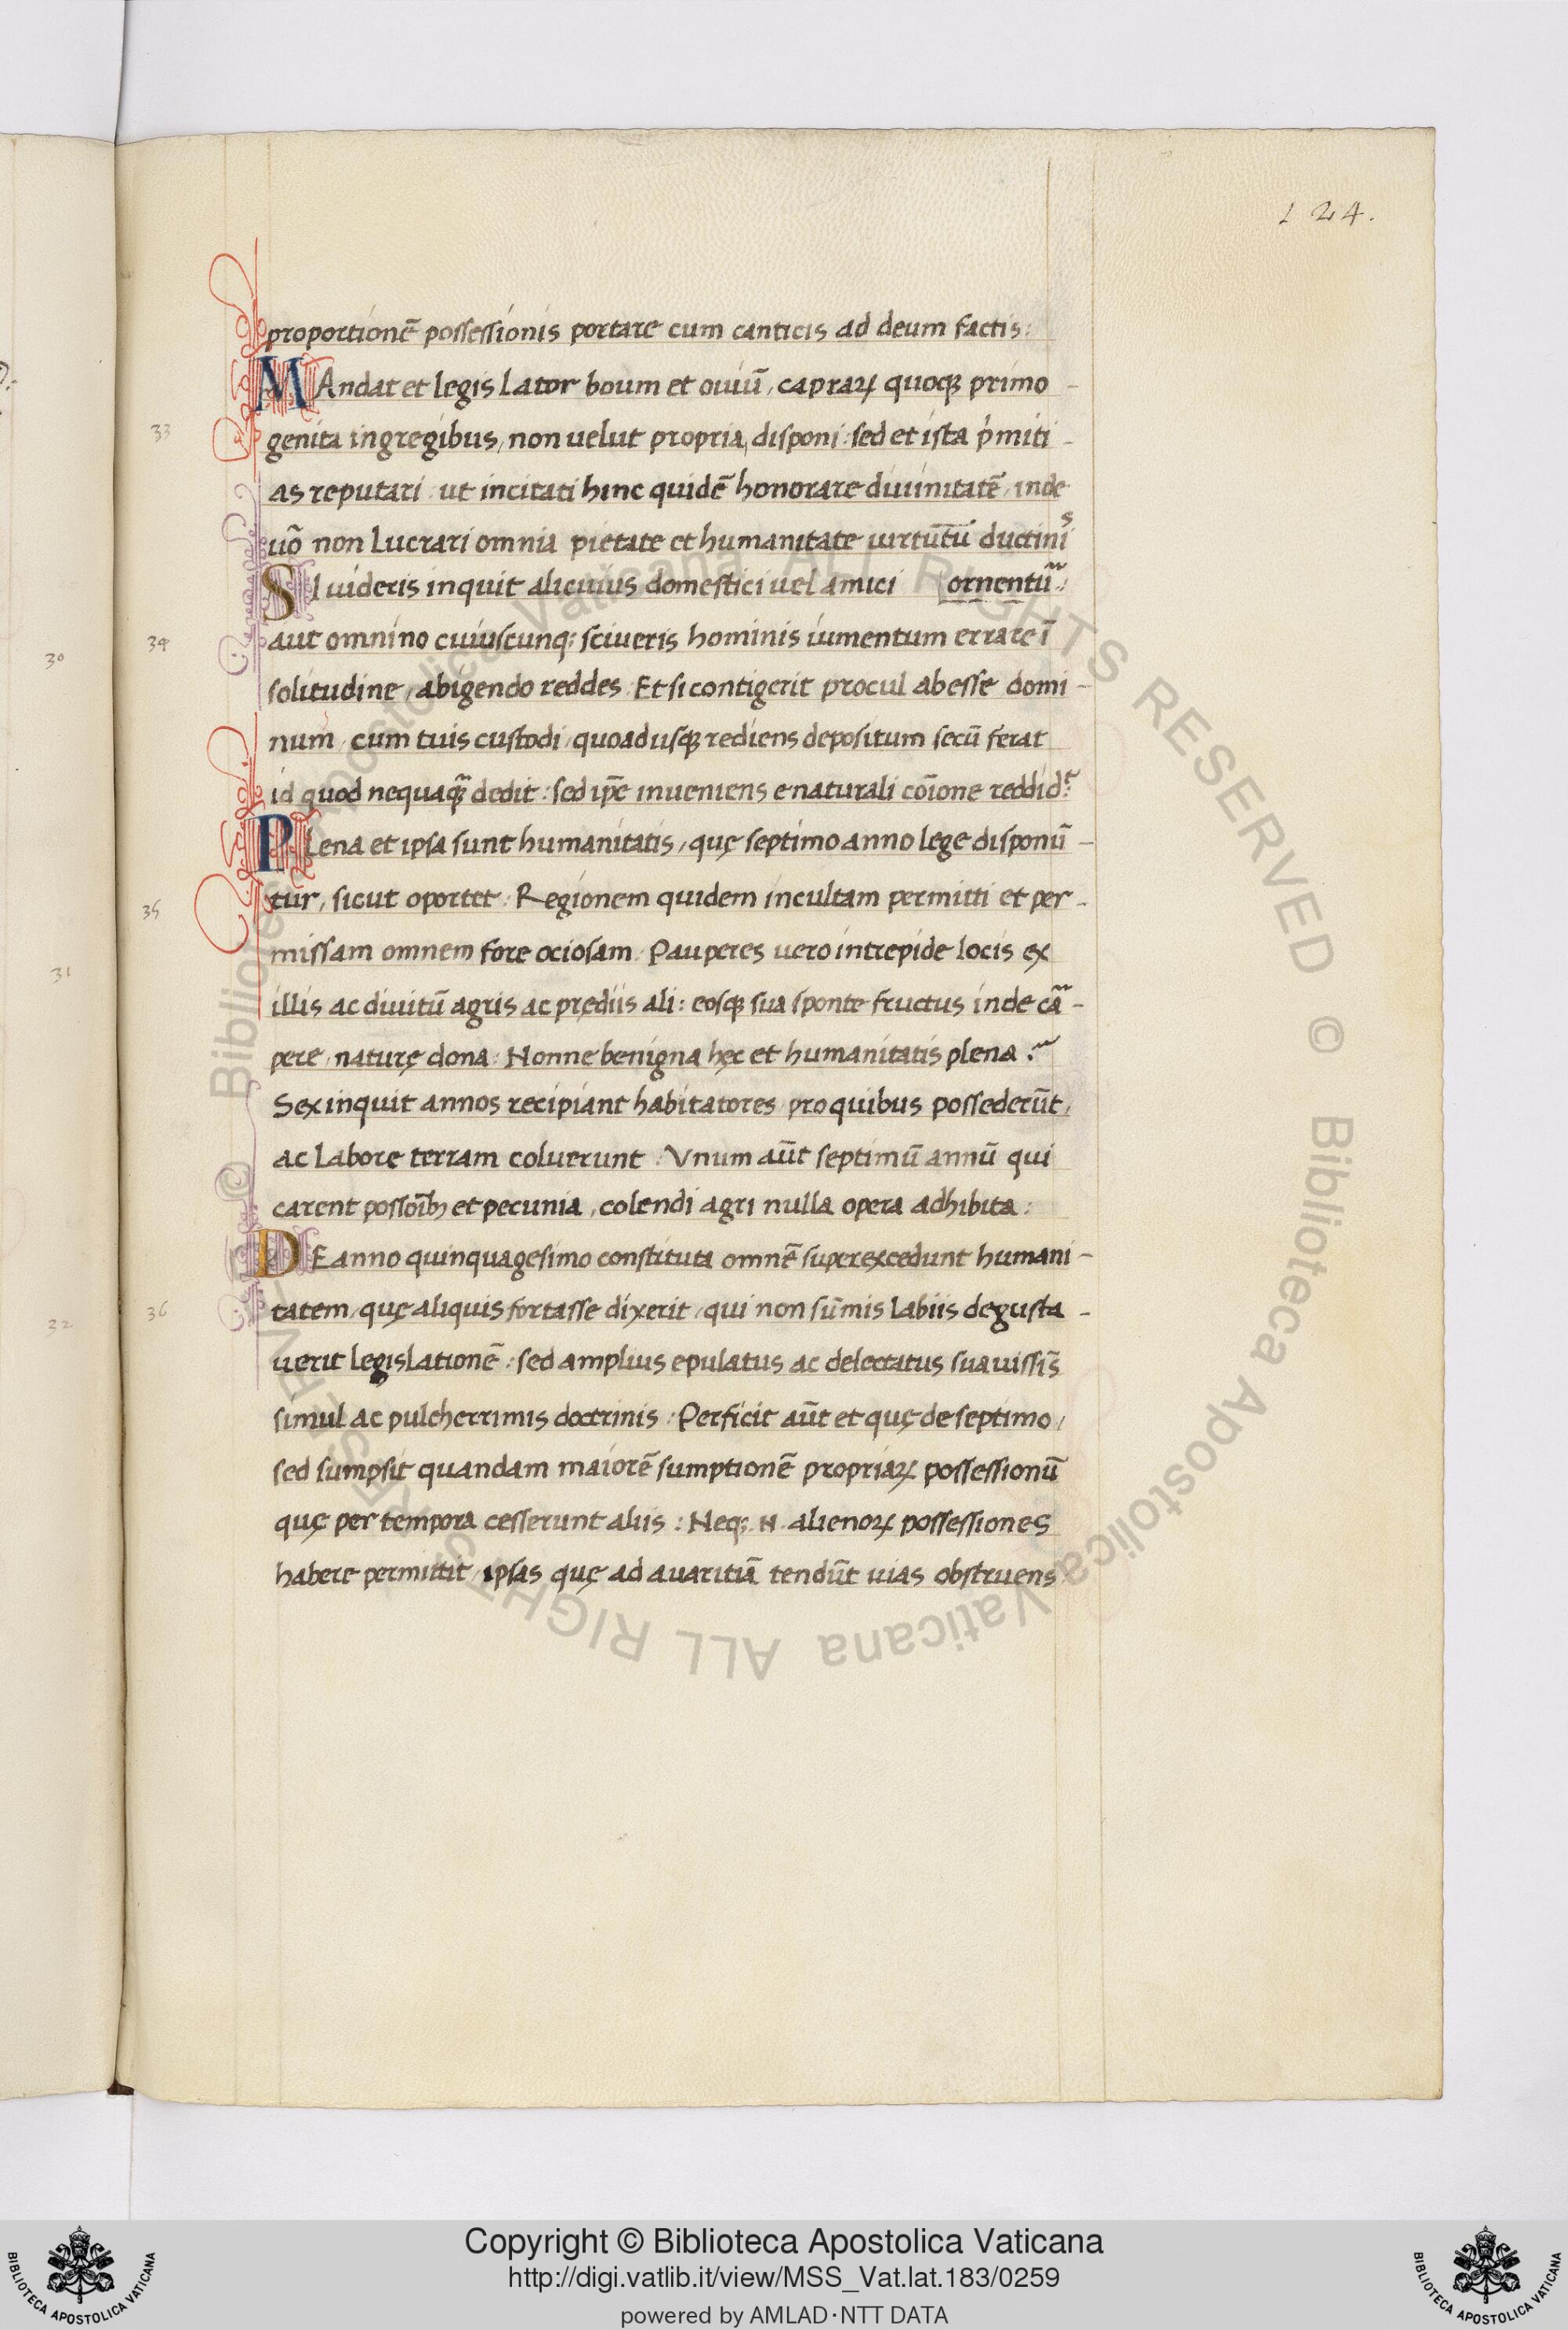 124.
proportionē possessionis portare cum canticis ad deum factis:
MAndat et legis lator boum et ouiū, capraꝝ quoqꝫ primo-
33
genita in gregibus, non uelut propria disponi: sed et ista p̍miti-
as reputari ut incitati hinc quidē honorare diuinitatē, inde
uō non lucrari omnia pietate et humanitate uirtūtū ductinis
SI uideris inquit alicuius domestici uel amici [ornentū
34
30
aut omnino cuiuscunqꝫ sciueris hominis iumentum errare ī
solitudine, abigendo reddes. Et si contigerit procul abesse domi-
num, cum tuis custodi, quoadusqꝫ rediens depositum secū ferat
id quod nequaqꝫ̄ dedit: sed ip̄e inueniens e naturali cōione reddidᵗ:
PLena et ipsa sunt humanitatis, quę septimo anno lege disponū-
35
tur, sicut oportet: Regionem quidem incultam permitti et per-
missam omnem fore ociosam. Pauperes uero intrepide locis ex
31
illis ac diuitū agris ac prędiis ali: eosqꝫ sua sponte fructus inde cā-
pere, naturę dona: Nonne benigna hęc et humanitatis plena?
Sex inquit annos recipiant habitatores pro quibus possederūt,
ac labore terram coluerunt: Vnum aūt septimū annū qui
carent possoībꝫ et pecunia, colendi agri nulla opera adhibita:
DE anno quinquagesimo constituta omnē superexcedunt humani-
36
32
tatem, quę aliquis fortasse dixerit, qui non sūmis labiis degusta-
uerit legislationē: sed amplius epulatus ac delectatus suauissīs
simul ac pulcherrimis doctrinis: Perficit aūt et quę de septimo,
sed sumpsit quandam maiorē sumptionē propriaꝝ possessionū
quę per tempora cesserunt aliis: Neqꝫ .N. alienoꝝ possessiones
habere permittit, ipsas quę ad auaritiā tendūt uias obstruens
© Biblioteca Apostolica Vaticana ALL RIGHTS RESERVED © Biblioteca Apostolica Vaticana ALL RIGHTS RESERVED
Copyright © Biblioteca Apostolica Vaticana
http://digi.vatlib.it/view/MSS_Vat.lat.183/0259
powered by AMLAD·NTT DATA
BIBLIOTECA APOSTOLICA VATICANA
BIBLIOTECA APOSTOLICA VATICANA